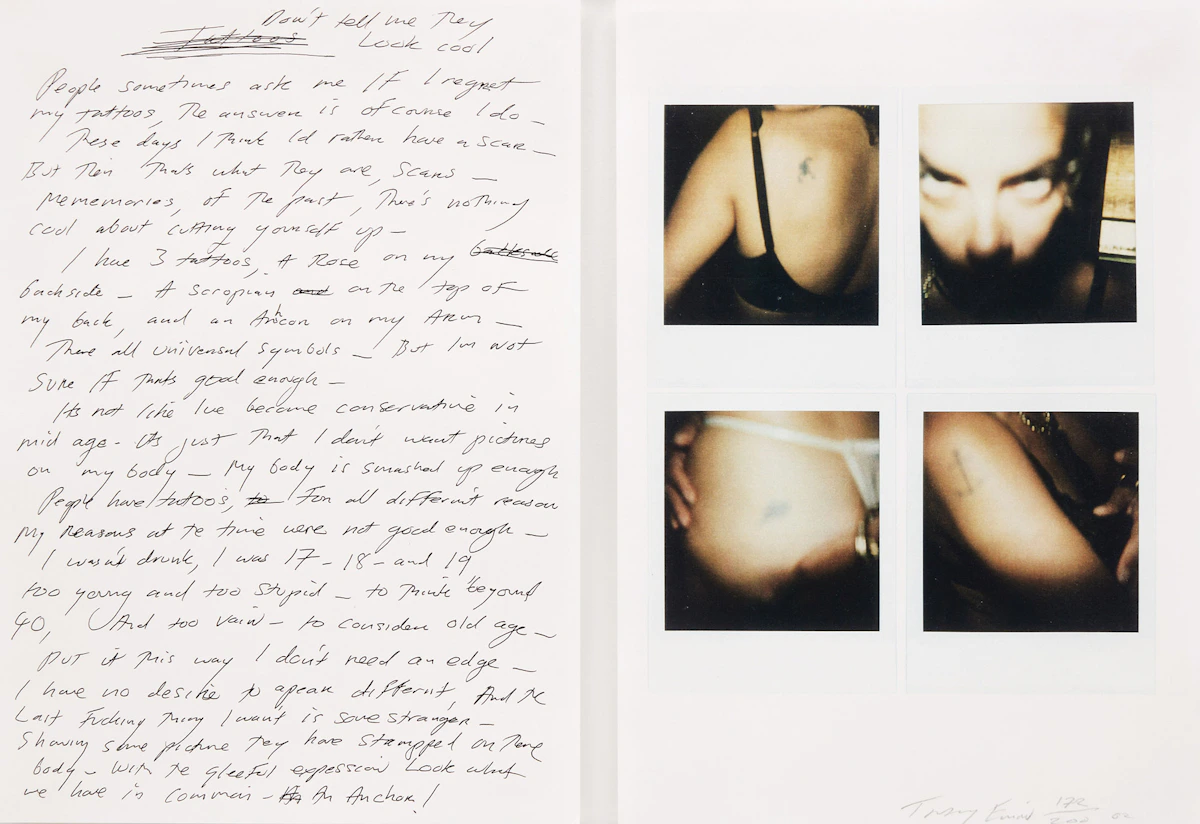 Don't tell me They
Tattoos Look cool
People sometimes ask me IF I regret
my tattoos, The answer is of course I do –
These days I think I'd rather have a scar –
But Then Thats what They are, Scars –
Mememories, of The past, There's nothing
cool about cutting yourself up –
I have 3 tattoos, A Rose on my backside
backside – A Scropian and on the top of
my back, and an Anhcor on my Arm –
There all universal symbols – But Im not
Sure IF thats good enough –
Its not like Ive become conservative in
mid age – Its just That I don't want pictures
on my body – My body is smashed up enough
People have tattoo's, to For all different reason
My Reasons at te time were not good enough –
I wasn't drunk, I was 17 – 18 – and 19
too young and too stupid – to think beyond
40, And too vain – to consider old age –
PUT it This way I don't need an edge –
I have no desire to apear different, And te
Last Fucking thing I want is some stranger –
Showing some picture tey have stampped on There
body – With te gleeful expession Look what
we have in common – An An Anchor!
Tracey Emin 172/200 02